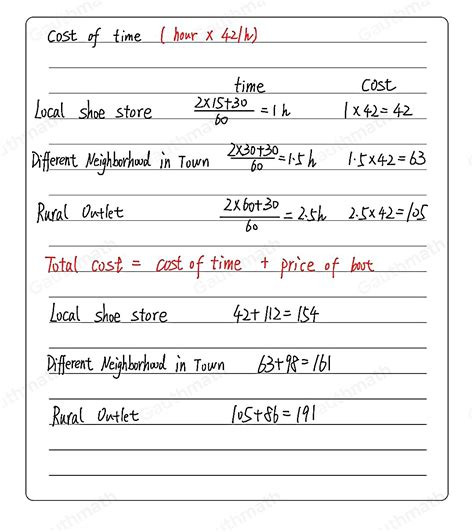 Cost of time (hour x 42/h)
time cost
Local shoe store (2x15+30)/60 = 1h 1x42=42
Different Neighborhood in Town (2x30+30)/60 = 1.5h 1.5x42=63
Rural Outlet (2x60+30)/60 = 2.5h 2.5x42=105
Total cost = cost of time + price of boot
Local shoe store 42+112=154
Different Neighborhood in Town 63+98=161
Rural Outlet 105+86=191